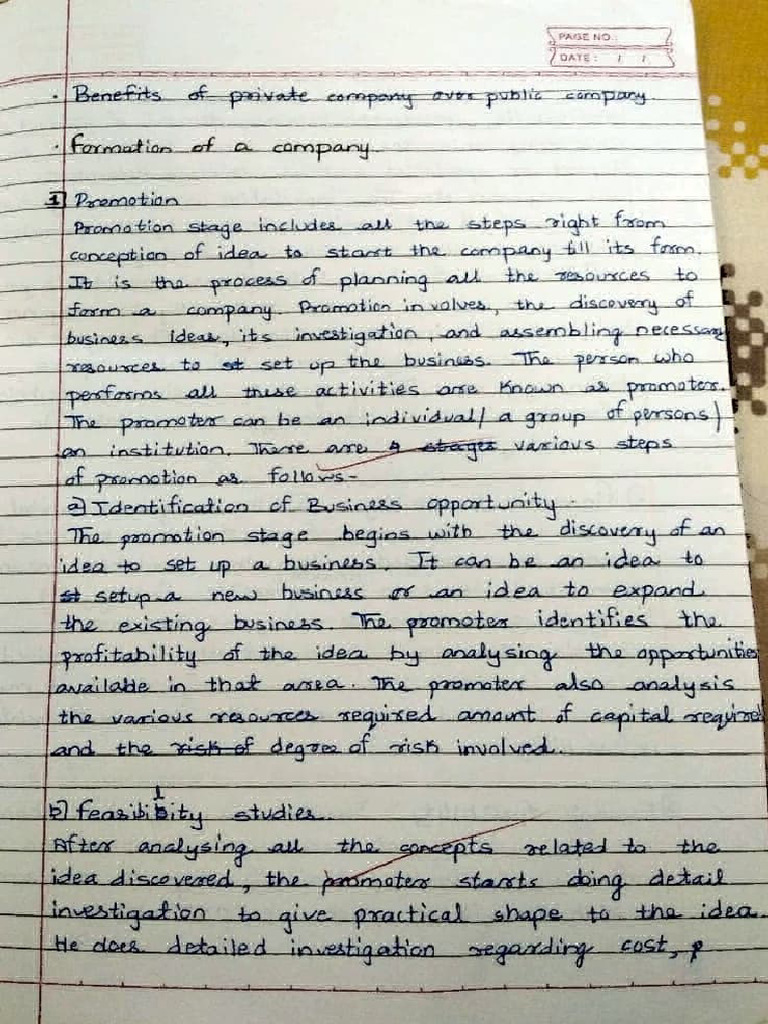 PAGE NO.:
DATE: / /
• Benefits of private company over public company
• Formation of a company
1 Promotion
Promotion stage includes all the steps right from
conception of idea to start the company till its form.
It is the process of planning all the resources to
form a company. Promotion involves, the discovery of
business ideas, its investigation, and assembling necessary
resources to st set up the business. The person who
performs all these activities are known as promoter.
The promoter can be an individual/ a group of persons/
an institution. There are 4 stages various steps
of promotion as follows-
a) Identification of Business opportunity.
The promotion stage begins with the discovery of an
idea to set up a business. It can be an idea to
st setup a new business or an idea to expand
the existing business. The promoter identifies the
profitability of the idea by analysing the opportunities
available in that area. The promoter also analysis
the various resources required amount of capital required
and the risk of degree of risk involved.
b) Feasibility studies.
After analysing all the concepts related to the
idea discovered, the promoter starts doing detail
investigation to give practical shape to the idea.
He does detailed investigation regarding cost, p